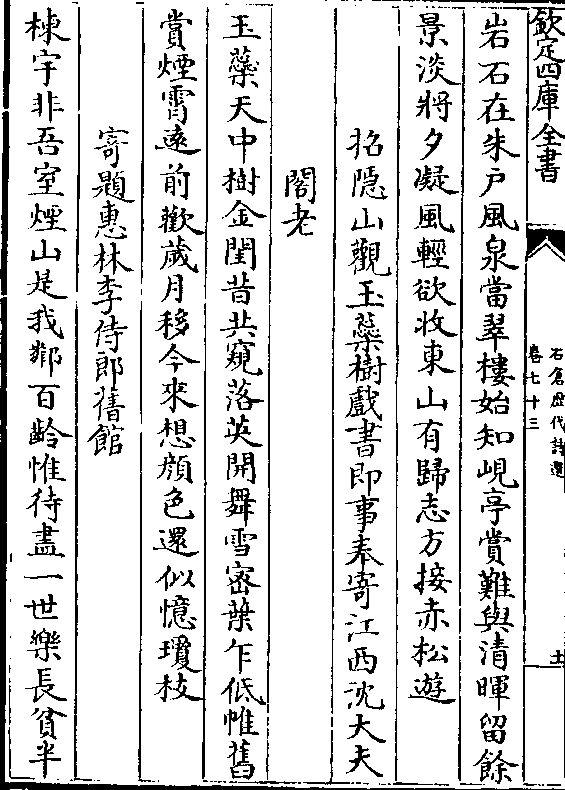 欽定四庫全書
石倉歴代詩選
卷七十三
十
岩石在朱户風泉當翠樓始知峴亭賞難與清暉留餘
景淡將夕凝風輕欲收東山有歸志方接赤松遊
招隱山觀玉蘂樹戲書即事奉寄江西沈大夫
閣老
玉蘂天中樹金閨昔共窺落英開舞雪宻葉乍低帷舊
賞煙霄逺前歡嵗月移今來想顔色還似憶瓊枝
寄題惠林李侍郎舊館
棟宇非吾室煙山是我鄰百齡惟待盡一世樂長貧半